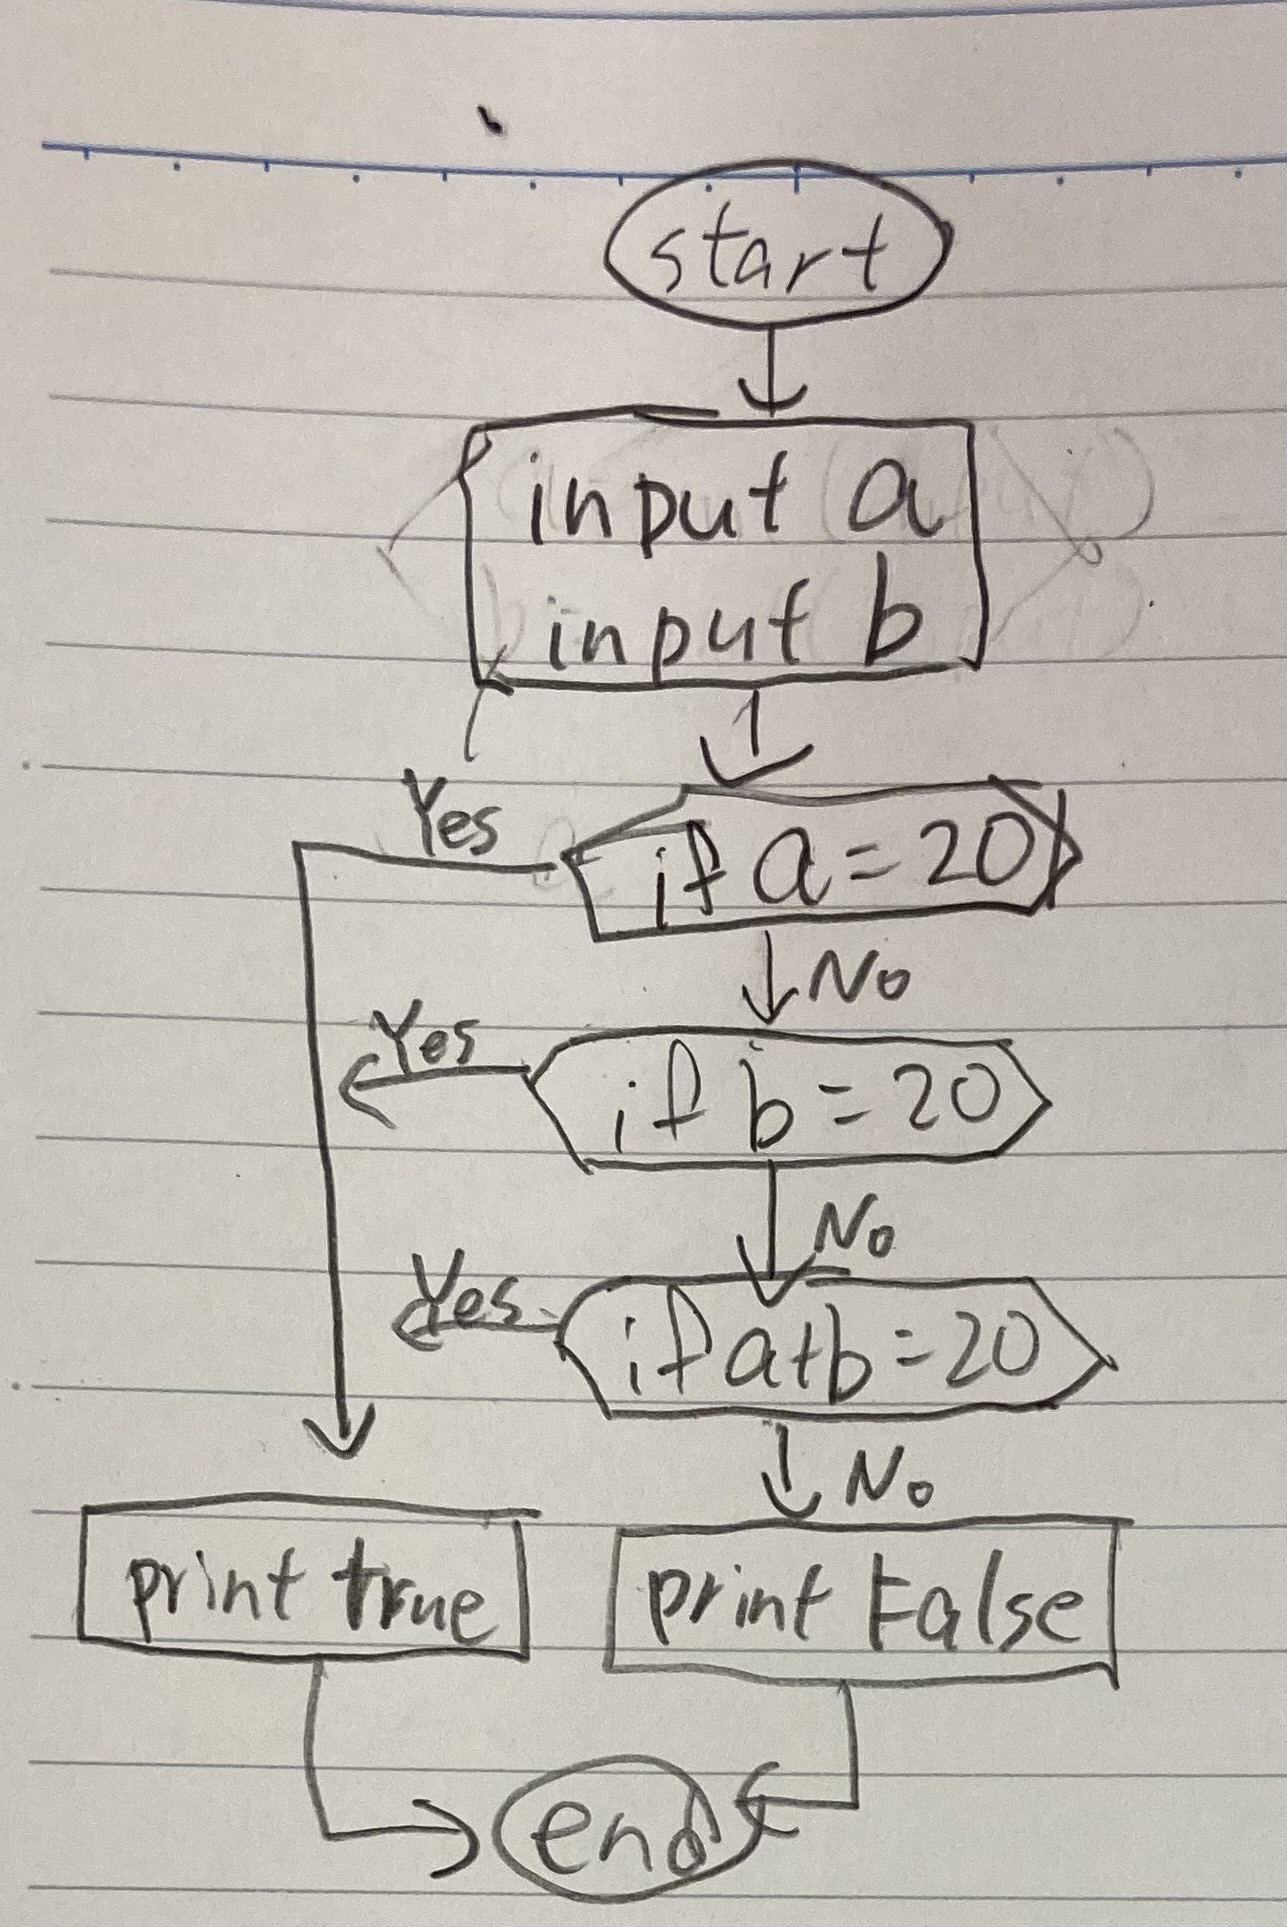 start
input a
input b
Yes
if a = 20
No
Yes
if b = 20
No
Yes
if a+b = 20
No
print true
print False
end